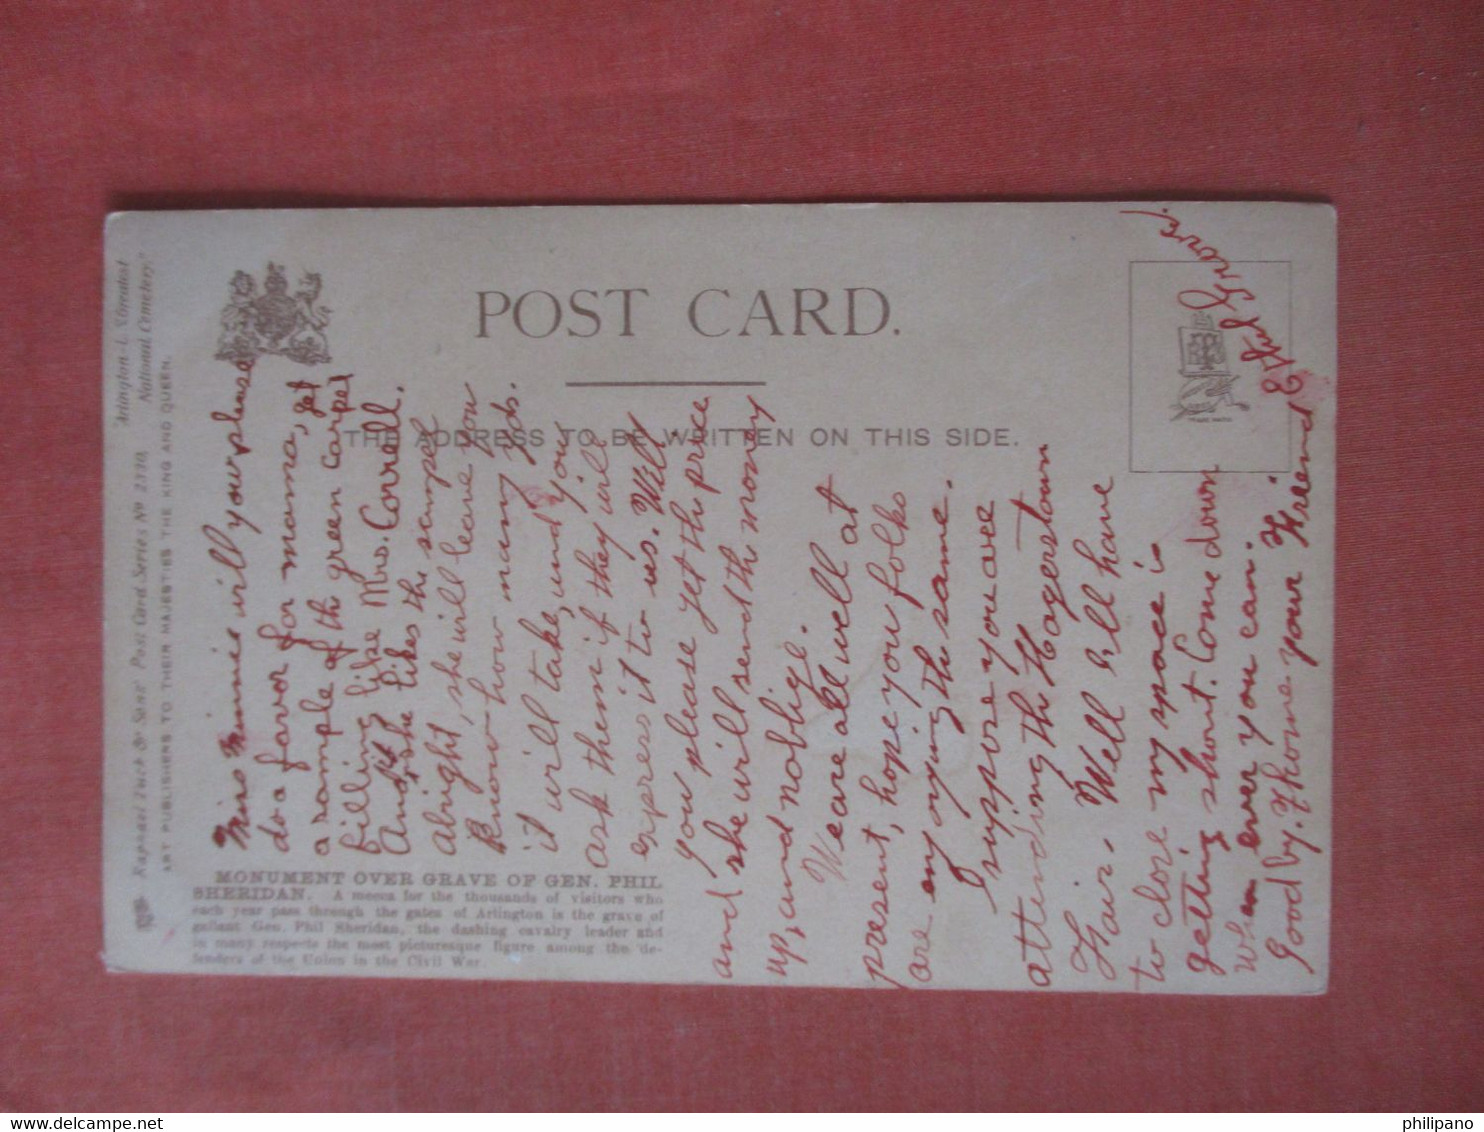 POST CARD.
THE ADDRESS TO BE WRITTEN ON THIS SIDE.
"Arlington-L. S.Greatest
National Cemetery."
Raphael Tuck & Sons' Post Card Series No 2330,
ART PUBLISHERS TO THEIR MAJESTIES THE KING AND QUEEN.
MONUMENT OVER GRAVE OF GEN. PHIL
SHERIDAN. A mecca for the thousands of visitors who
each year pass through the gates of Arlington is the grave of
gallant Gen. Phil Sheridan, the dashing cavalry leader and
in many respects the most picturesque figure among the de-
fenders of the Union in the Civil War.
Miss Minnie will you please
do a favor for mama, get
a sample of the green carpet
filling like Mrs. Correll.
And if she likes the sempel
alright, she will leave you
know how many yds.
it will take, und you
ask them if they will
express it to us. Well
you please get the price
and she will send the money
up, and noblige.
We are all well at
present, hope you folks
are enjoying the same.
I suppose you are
attending the Hagerstown
Fair. Well I'll have
to close my space is
getting short. Come down
when ever you can.
Good by. From your Freind